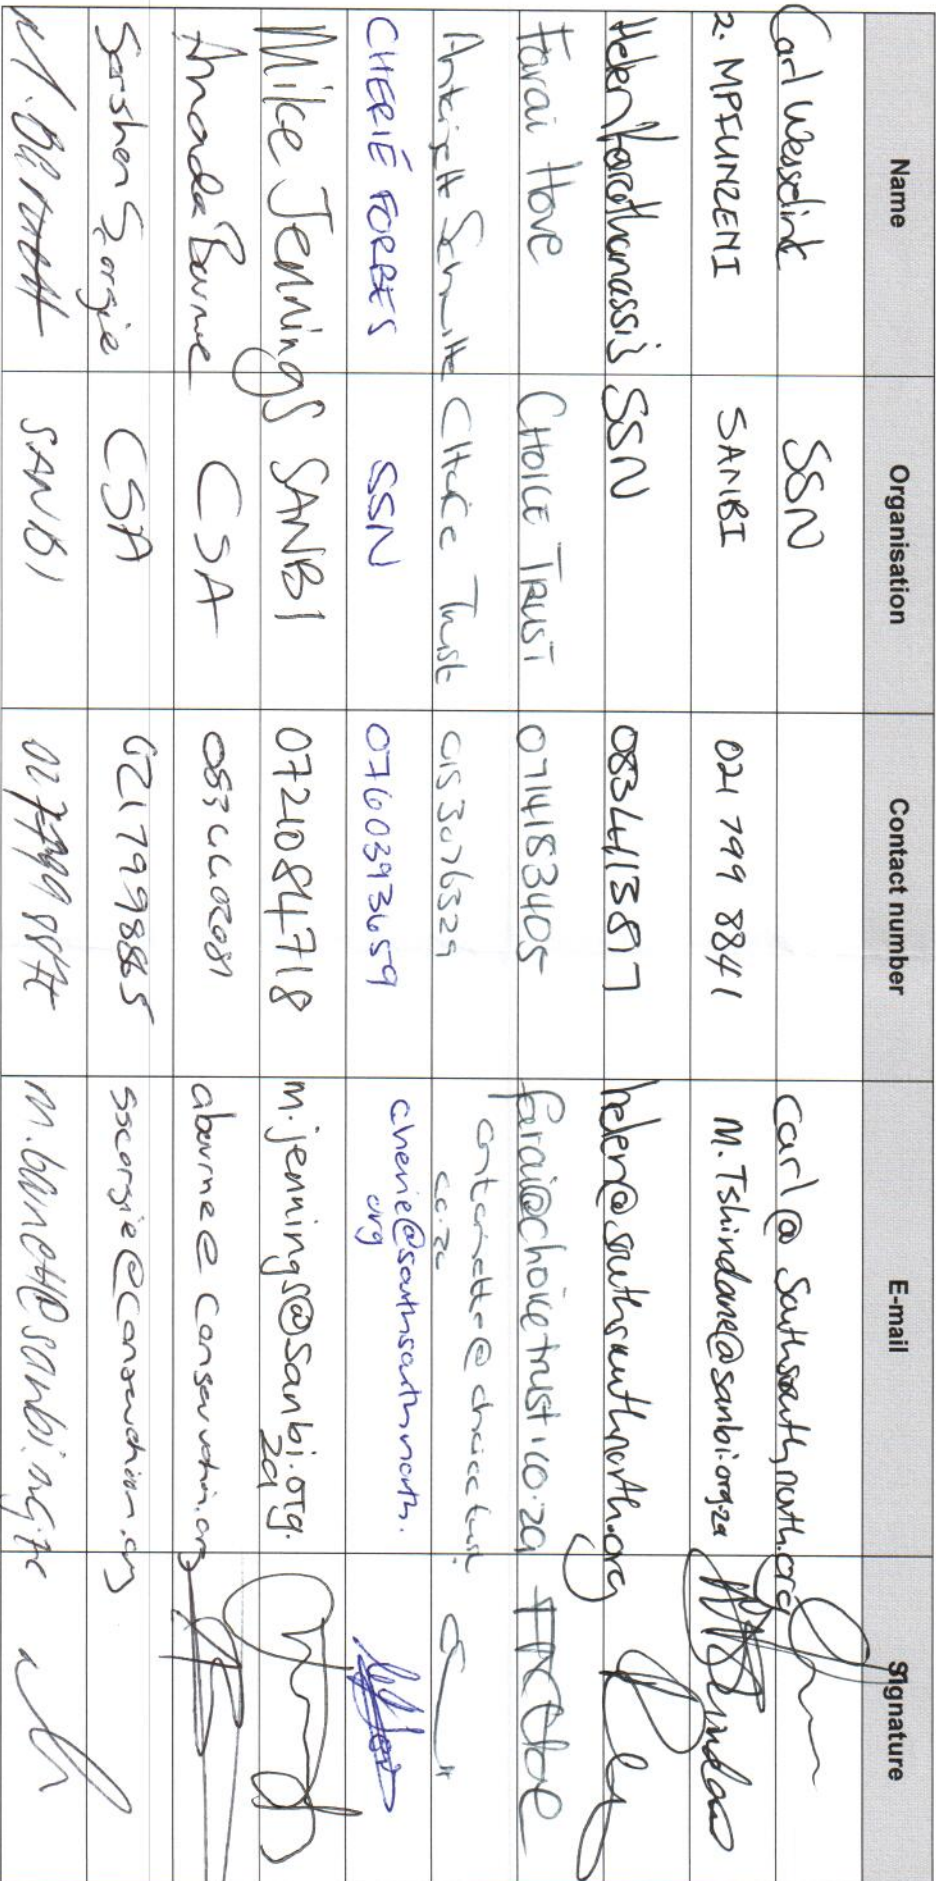 Name Organisation Contact number E-mail Signature
Carl Wesselink SSN carl@southsouthnorth.org
2. MPFUNZENI SANBI 021 799 8841 M.Tshindane@sanbi.org.za
Helen Karathanassis SSN 0834113817 helen@southsouthnorth.org
Farai Hove CHOICE TRUST 0714183405 farai@choicetrust.co.za
Choice Trust 0153076329
co.za
CHERIÉ FORBES SSN 0760393659 cherie@southsouthnorth.
org
Mike Jennings SANBI 0721084718 m.jennings@sanbi.org.
za
Amanda Bourne CSA abourne@conservation.org
Sarshen Scorgie CSA 0217998865 sscorgie@conservation.org
SANBI